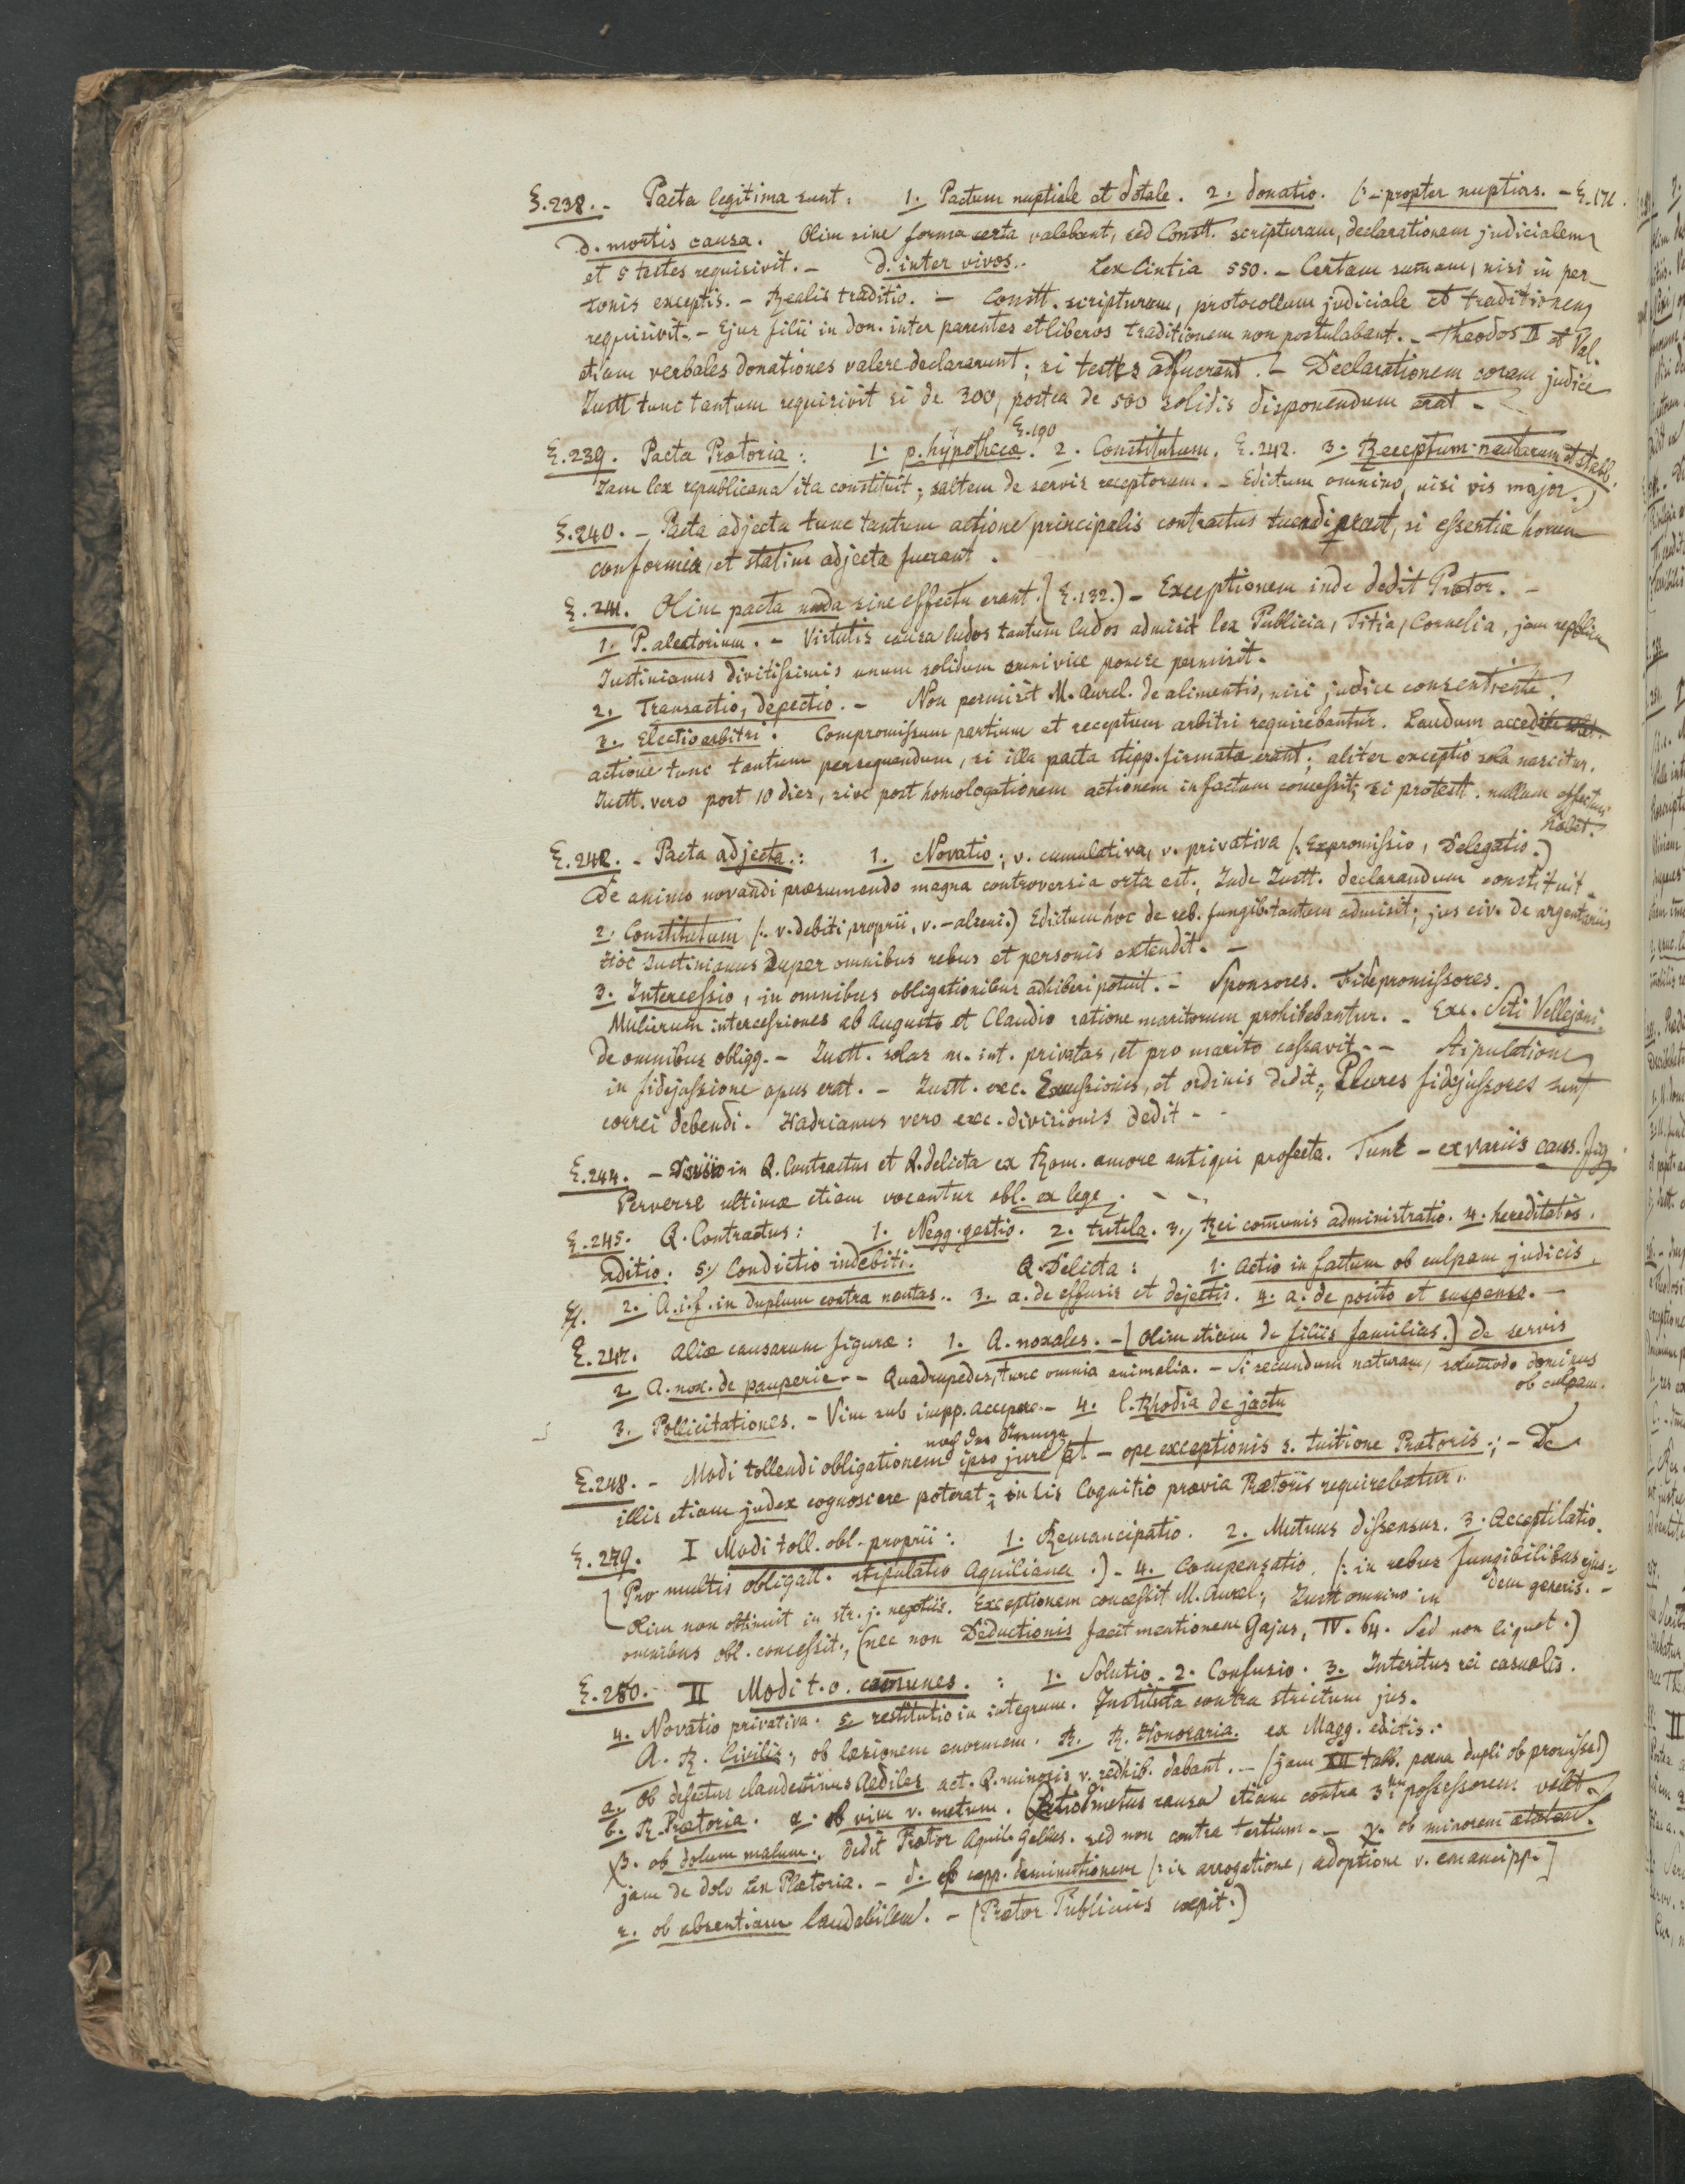 §.238. - Pacta legitima sunt: 1. Pactum nuptiale et dotale. 2. donatio. (: - propter nuptias. - §.171.
d. mortis causa. Olim sine forma certa valebant, sed Constt. scripturam, declarationem judicialem
et 5 testes requisivit. - d. inter vivos.. Lex Cintia 550. - Certam sumam, nisi in per-
sonis exceptis. - Realis traditio. - Constt. scripturam, protocollum judiciale et traditionem
requisivit. - Ejus filii in don. inter parentes et liberos traditionem non postulabant. - Theodos II et Val.
etiam verbales donationes valere declararunt; si testes adfuerant. - Declarationem coram judice
Justt tunc tantum requisivit si de 300, postea de 500 solidis disponendum erat -
§.190
§.239. Pacta Prætoria: 1. p. hypothecæ. 2. Constitutum. §.242. 3. Receptum nautarum et stabb.
Jam lex republicana ita constituit; saltem de servis receptorum. - Edictum omnino, nisi vis major.)
§.240. - Pacta adjecta tunc tantum actione principalis contractus tuendi erant, si essentiæ horum
conformia, et statim adjecta fuerant.
§.241. Olim pacta nuda sine effectu erant. (§.132.) - Exceptionem inde dedit Prætor. -
1. P. aleatorium. - Virtutis causa ludos tantum ludos admisit lex Publicia, Titia, Cornelia, jam republicæ
Justinianus divitissimis unum solidum omni vice ponere permisit.
2. Transactio, depectio. - Non permisit M. Aurel. de alimentis, nisi judice consentiente.
3. Electio arbitri. Compromissum partium et receptum arbitri requirebantur. Laudum
actione tunc tantum persequendum, si illa pacta stipp. firmata erant; aliter exceptio sola nascitur.
Justt. vero post 10 dies, sive post homologationem actionem in factum concessit; si protestt. nullum effectum
habet.
§.242. - Pacta adjecta: 1. Novatio; v. cumulativa, v. privativa (: Expromissio, Delegatio.)
De animo novandi præsumendo magna controversia orta est. Inde Justt. declarandum constituit.
2. Constitutum (: v. debiti proprii, v. - alieni.) Edictum hoc de reb. fungib. tantum admisit; jus civ. de argentariis
Hoc Justinianus super omnibus rebus et personis extendit. -
3. Intercessio, in omnibus obligationibus adhiberi potuit. - Sponsores. Fidepromissores.
Mulierum intercessiones ab Augusto et Claudio ratione maritorum prohibebantur. - Exc. Scti Vellejani.
de omnibus obligg. - Justt. solas m. int. privatas, et pro marito cassavit. - - Stipulatione
in fidejussione opus erat. - Justt. exc. Excussionis, et ordinis dedit; Plures fidejussores sunt
correi debendi. Hadrianus vero exc. divisionis dedit - -
§.244. - Divisio in Q. Contractus et Q. delicta ex Rom. amore antiqui profecta. Tunc - ex variis caus. figg.
Perverse ultimæ etiam vocantur obl. ex lege. - -
§.245. Q. Contractus: 1. Negg. gestio. 2. tutela. 3., Rei comunis administratio. 4. hereditatis.
aditio. 5., Condictio indebiti. Q. Delicta: 1. actio in factum ob culpam judicis.
2. A. i. f. in duplum contra nautas.. 3. a. de effusis et dejectis. 4. a. de posito et suspenso. -
§.247. Aliæ causarum figuræ: 1. A. noxales. - (Olim etiam de filiis familias.) de servis
2. A. nox. de pauperie - - Quadrupedes, tunc omnia animalia. - Si secundum naturam, solumodo dominus
ob culpam.
3. Pollicitationes. - Vim sub impp. accepere - 4. l. Rhodia de jactu
§.248. - Modi tollendi obligationem ipso jure et - ope exceptionis s. tuitione Prætoris.; - De
illis etiam judex cognoscere poterat; in his Cognitio prævia Prætoris requirebatur..
§.249. I Modi toll. obl. proprii: 1. Remancipatio. 2. Mutuus dissensus. 3. Acceptilatio.
(Pro multis obligatt. stipulatio Aquiliana.) - 4. Compensatio. (: in rebus fungibilibus ejus-
dem generis. -
Olim non obtinuit in str. j. negotiis. Exceptionem concessit M. Aurel.; Justt omnino in
omnibus obl. concessit; (nec non Deductionis facit mentionem Gajus, IV. 64. Sed non liquet.)
§.250. II Modi t. o. comunes. : 1. Solutio. 2. Confusio. 3. Interitus rei casualis.
4. Novatio privativa. 5. restitutio in integrum. Instituta contra strictum jus.
A. R. Civilis, ob læsionem enormem. B. R. Honoraria. ex Magg. editis.
a. Ob defectus clandestinos Aediles act. Q. minoris v. redhib. dabant. - (jam XII tabb. poena dupli ob promissa)
b. R. Prætoria. α. ob vim v. metum. (Actio metus causa etiam contra 3tium possessorem valet.
β. ob dolum malum., dedit Prætor Aquil. Gallus. sed non contra tertium. - γ. ob minorem ætatem.
jam de dolo Lex Plætoria. - δ. ob capp. deminutionem (: in arrogatione, adoptione v. emancipp.]
ε. ob absentiam laudabilem. - (Prætor Publicius cœpit.)